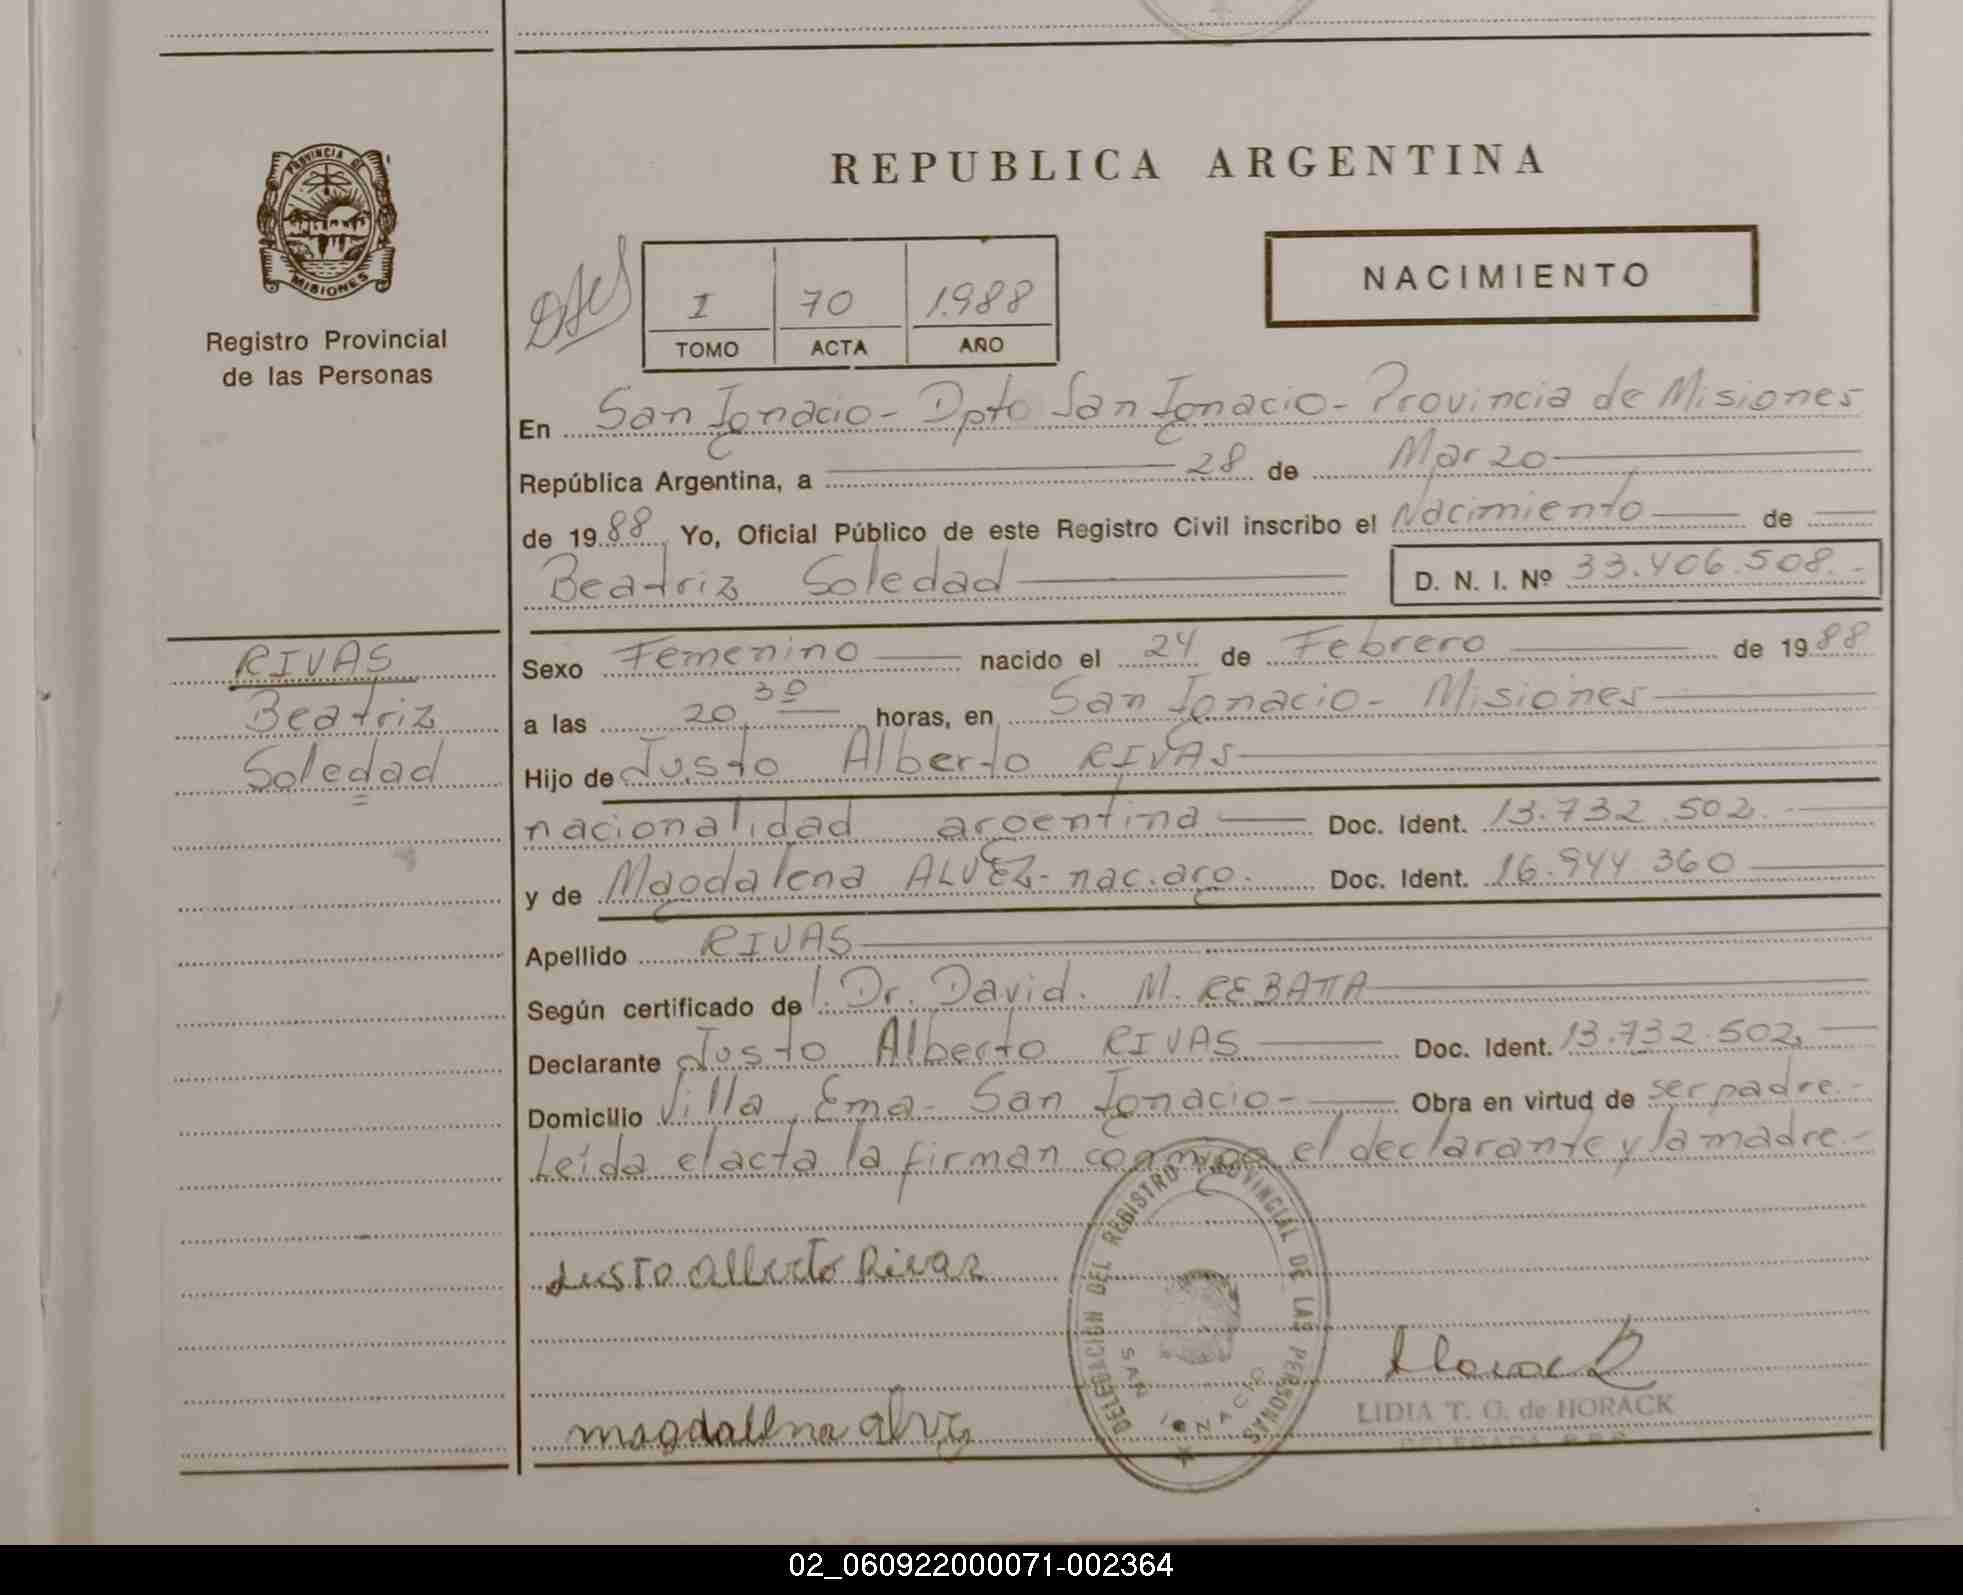 PROVINCIA DE
MISIONES
Registro Provincial
de las Personas
REPUBLICA ARGENTINA
NACIMIENTO
I 70 1.988
TOMO ACTA AÑO
En San Ignacio - Dpto San Ignacio - Provincia de Misiones
República Argentina, a 28 de Marzo
de 19 88 Yo, Oficial Público de este Registro Civil inscribo el Nacimiento de
Beatriz Soledad D. N. I. Nº 33.406.508.-
RIVAS
Beatriz
Soledad
Sexo Femenino nacido el 24 de Febrero de 19 88
a las 20,30 horas, en San Ignacio - Misiones
Hijo de Justo Alberto RIVAS
nacionalidad argentina Doc. Ident. 13.732.502.
y de Magdalena ALVEZ - nac. arg. Doc. Ident. 16.944.360
Apellido RIVAS
Según certificado del Dr. David. M. REBATTA
Declarante Justo Alberto RIVAS Doc. Ident. 13.732.502,
Domicilio Villa Ema - San Ignacio - Obra en virtud de ser padre.-
Leída el acta la firman conmigo el declarante y la madre.-
Justo Alberto Rivas
DELEGACION DEL REGISTRO PROVINCIAL DE LAS PERSONAS
SAN IGNACIO
Horack
LIDIA T. G. de HORACK
magdalena alvez
02_060922000071-002364